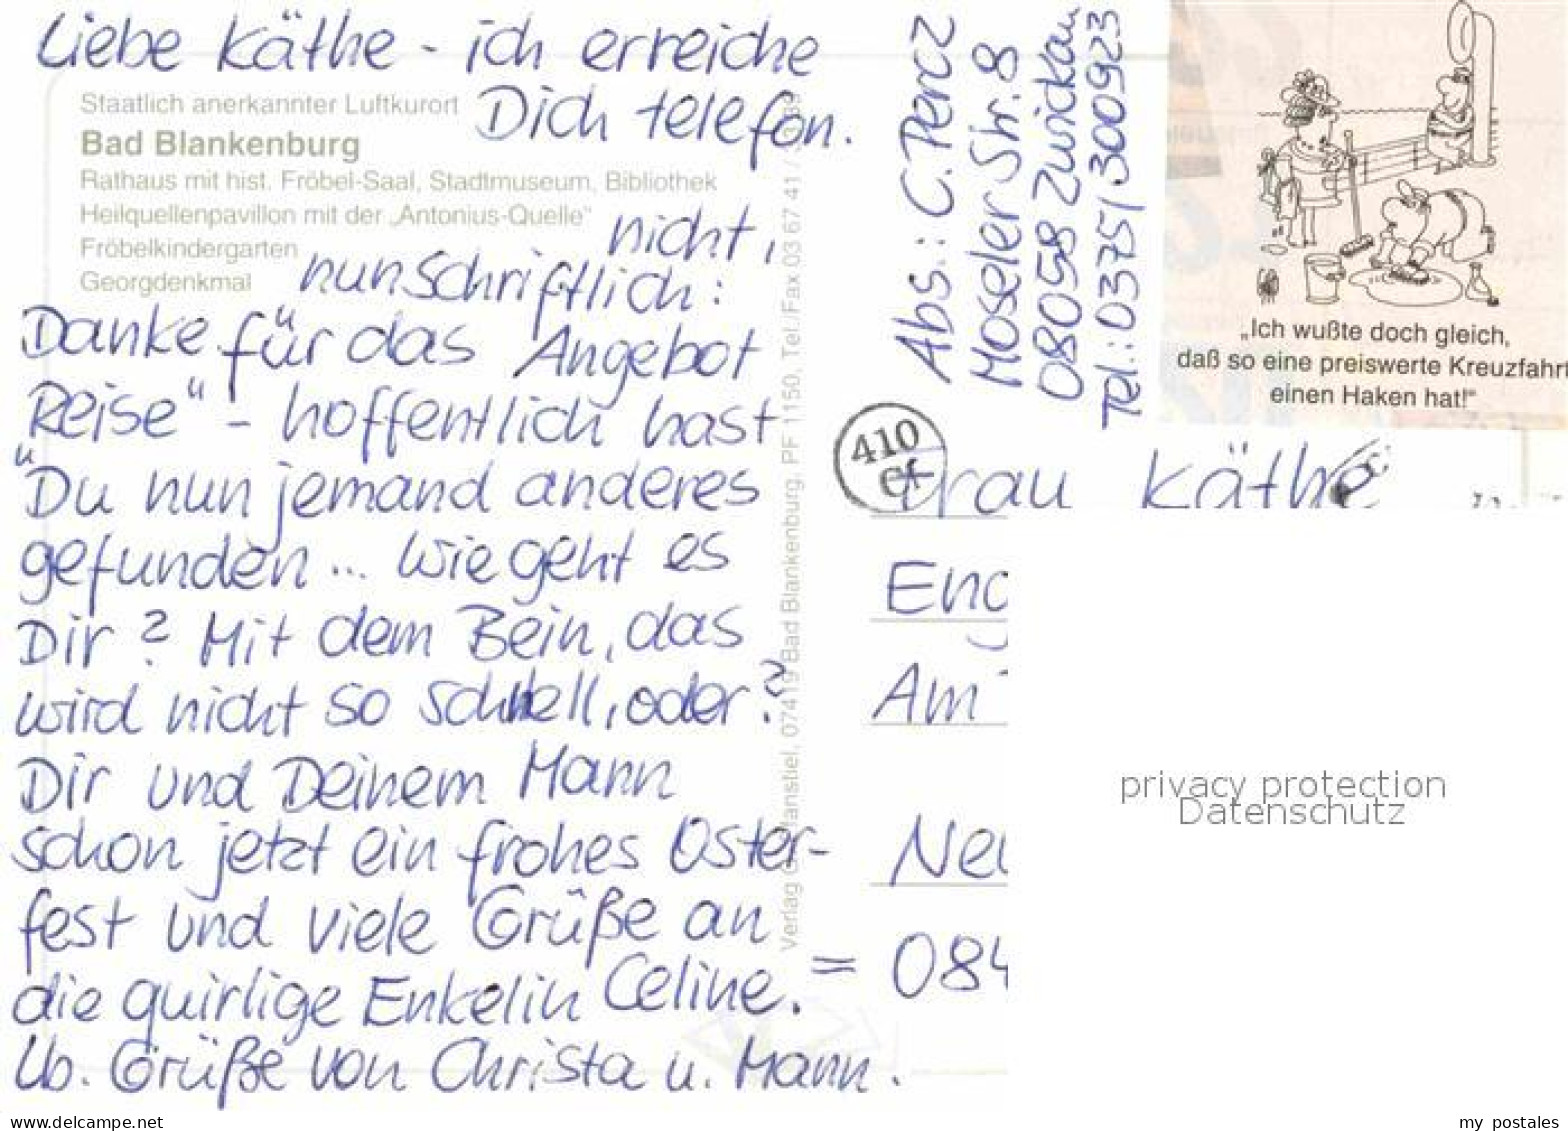 Liebe Käthe - ich erreiche
Dich telefon.
nicht,
nun schriftlich:
Danke für das Angebot
"Reise" - hoffentlich hast
Du nun jemand anderes
gefunden... Wie geht es
Dir? Mit dem Bein, das
wird nicht so schnell, oder?
Dir und Deinem Mann
schon jetzt ein frohes Oster-
fest und viele Grüße an
die quirlige Enkelin Celine.
Lb. Grüße von Christa u. Mann.
Staatlich anerkannter Luftkurort
Bad Blankenburg
Rathaus mit hist. Fröbel-Saal, Stadtmuseum, Bibliothek
Heilquellenpavillon mit der „Antonius-Quelle"
Fröbelkindergarten
Georgdenkmal
07419 Bad Blankenburg, PF 1150, Tel./Fax 03 67 41 /
Abs.: C.
Moseler Str. 8
08058 Zwickau
Tel.: 0375/300923
„Ich wußte doch gleich,
daß so eine preiswerte Kreuzfahrt
einen Haken hat!"
410
Frau Käthe
Am
= 084
privacy protection
Datenschutz
www.delcampe.net
my postales